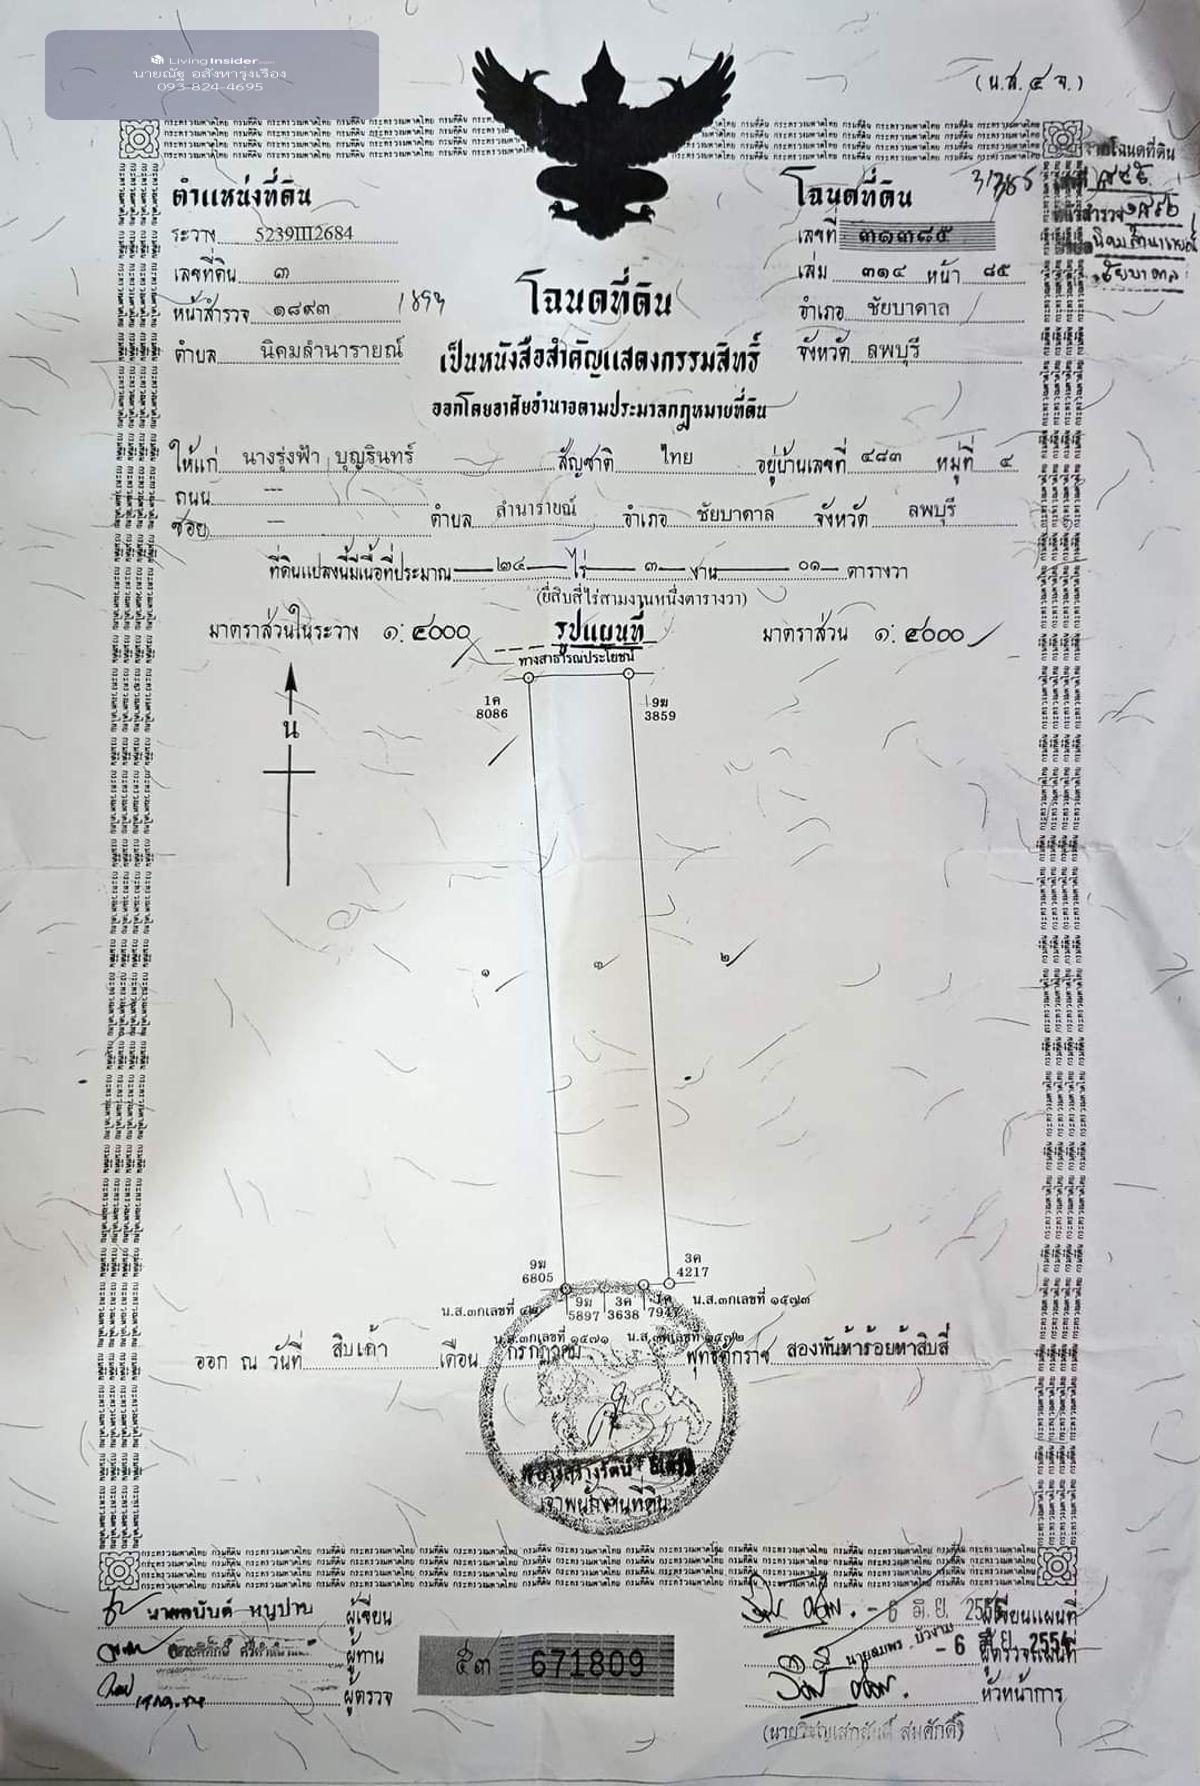 LivingInsider
นายณัฐ อสังหารุ่งเรือง
093-824-4695
(น.ส.๔ จ.)
ตำแหน่งที่ดิน
ระวาง 5239III2684
เลขที่ดิน ๓
หน้าสำรวจ ๑๘๙๓ 1893
ตำบล นิคมลำนารายณ์
โฉนดที่ดิน 31385
เลขที่ ๓๑๓๘๕
เล่ม ๓๑๔ หน้า ๘๕
อำเภอ ชัยบาดาล
จังหวัด ลพบุรี
โฉนดที่ดิน
นิคมลำนารายณ์
ชัยบาดาล
โฉนดที่ดิน
เป็นหนังสือสำคัญแสดงกรรมสิทธิ์
ออกโดยอาศัยอำนาจตามประมวลกฎหมายที่ดิน
ให้แก่ นางรุ่งฟ้า บุญรินทร์ สัญชาติ ไทย อยู่บ้านเลขที่ ๔๘๓ หมู่ที่ ๔
ถนน ---
ซอย --- ตำบล ลำนารายณ์ อำเภอ ชัยบาดาล จังหวัด ลพบุรี
ที่ดินแปลงนี้มีเนื้อที่ประมาณ ๒๔ ไร่ ๓ งาน ๐๑ ตารางวา
(ยี่สิบสี่ไร่สามงานหนึ่งตารางวา)
มาตราส่วนในระวาง ๑:๔๐๐๐ รูปแผนที่ มาตราส่วน ๑:๔๐๐๐
ทางสาธารณประโยชน์
1ค 9ฆ
8086 3859
น
๑ ๓ ๒
9ฆ 3ค
6805 4217
9ฆ 3ค
5897 3638 7947
น.ส.๓กเลขที่ น.ส.๓กเลขที่ ๑๕๗๓
น.ส.๓กเลขที่ ๑๕๗๑ น.ส.๓กเลขที่ ๑๕๗๒
ออก ณ วันที่ สิบเก้า เดือน กรกฎาคม พุทธศักราช สองพันห้าร้อยห้าสิบสี่
เจ้าพนักงานที่ดิน
ผู้เขียน
ผู้ทาน
ผู้ตรวจ
๕๓ 671809
- 6 มิ.ย. ผู้เขียนแผนที่
- 6 มิ.ย. 2554 ผู้ตรวจแผนที่
หัวหน้าการ